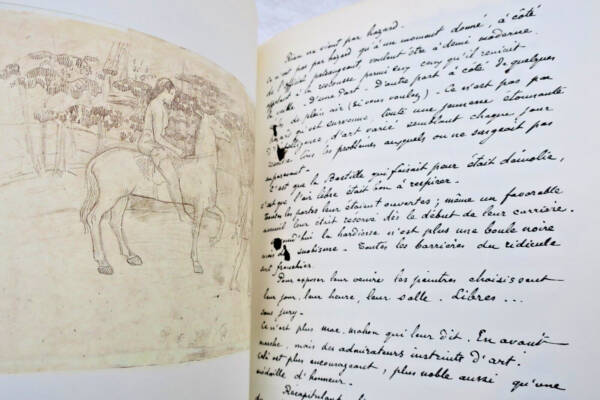 Rien ne s'est par hazard.
Ce n'est pas par hazard qu'à un moment donné, à côté
de l'officiel paissant, voulant être à demi moderne
à la rescousse parmi eux ceux qu'il réunit
la salle. D'une part. D'autre part à côté de quelques
de plein air (si vous voulez). Ce n'est pas par
qu'est survenue, toute une jeunesse étonnante
d'art varié semblant chaque jour
tous les problèmes auxquels on ne songeait pas
auparavant.
C'est que la Bastille qui faisait peur était démolie,
c'est que l'air libre était bon à respirer.
Toutes les portes leur étaient ouvertes; même un favorable
accueil leur était réservé dès le début de leur carrière.
Aujourd'hui la hardiesse n'est plus une boule noire
mais du snobisme. Toutes les barrières du ridicule
sont franchies.
Pour exposer leur oeuvre les peintres choisissent
leur jour, leur heure, leur salle. Libres...
sans jury.
Ce n'est plus mac. mahon qui leur dit. En avant
marche, mais des admirateurs instruits d'art.
Cela est plus encourageant, plus noble aussi qu'une
médaille d'honneur.
Récapitulant